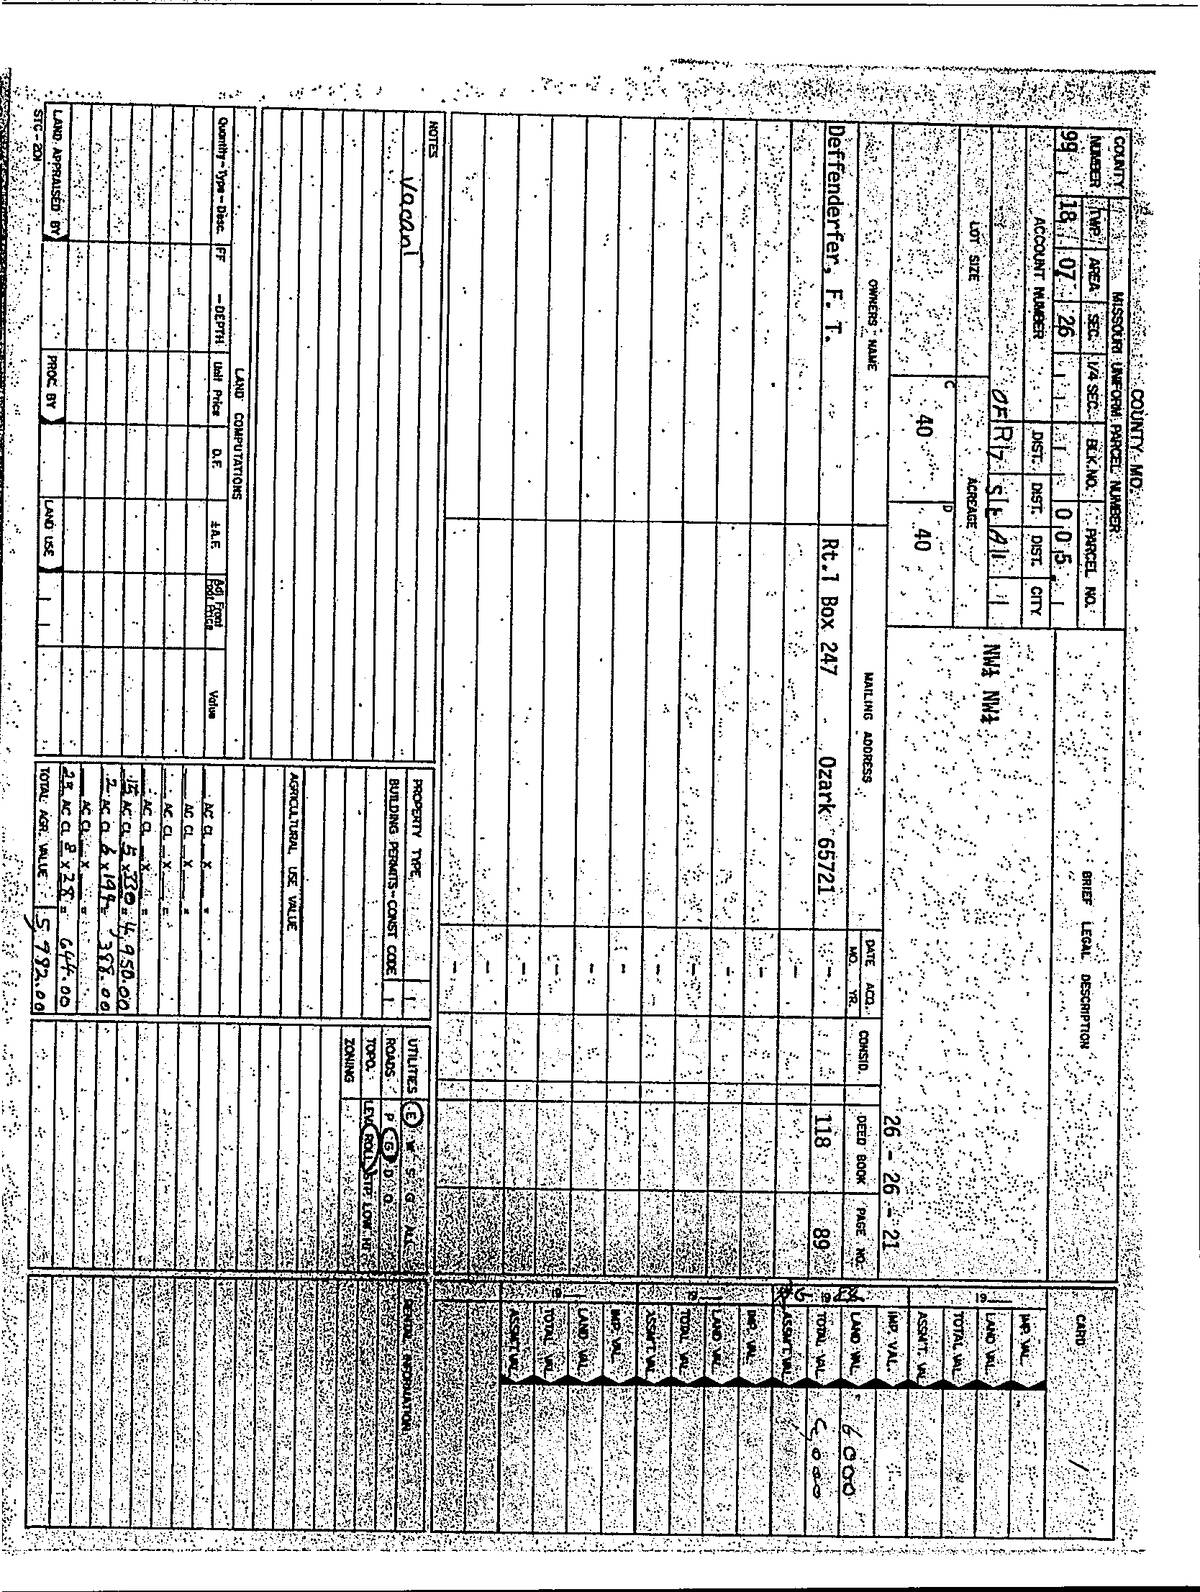 COUNTY MO.
MISSOURI UNIFORM PARCEL NUMBER
COUNTY NUMBER TWP. AREA SEC. 1/4 SEC. BLK. NO. PARCEL NO.
99 18 07 26 005
ACCOUNT NUMBER DIST. DIST. DIST. CITY
OFR7 S1E A1
LOT SIZE ACREAGE
C 40 D 40
BRIEF LEGAL DESCRIPTION
NW¼ NW¼
26 - 26 - 21
OWNERS NAME MAILING ADDRESS DATE ACQ. MO. YR. CONSID. DEED BOOK PAGE NO.
Deffenderfer, F. T. Rt.1 Box 247 Ozark 65721 - 118 89
CARD 1
19
IMP. VAL.
LAND VAL.
TOTAL VAL.
ASSMT. VAL.
19
IMP. VAL.
LAND VAL. 6000
TOTAL VAL.
ASSMT. VAL.
19
IMP. VAL.
LAND VAL.
TOTAL VAL.
ASSMT. VAL.
19
IMP. VAL.
LAND VAL.
TOTAL VAL.
ASSMT. VAL.
NOTES
Vacant
LAND COMPUTATIONS
Quantity - Type - Desc. FF - DEPTH Unit Price D.F. ± A.F. Adj. Front Foot Price Value
LAND APPRAISED BY PROC. BY LAND USE
STC - 201
PROPERTY TYPE
BUILDING PERMITS - CONST CODE
AGRICULTURAL USE VALUE
AC CL X =
AC CL X =
AC CL X =
AC CL X =
15 AC CL 5 X 330 = 4,950.00
2 AC CL 6 X 194 = 388.00
AC CL X =
23 AC CL 8 X 28 = 644.00
TOTAL AGR. VALUE 5,982.00
UTILITIES E W S G ALL
ROADS P G D O
TOPO. LEVL ROLL STP LOW HI
ZONING
RENTAL INFORMATION